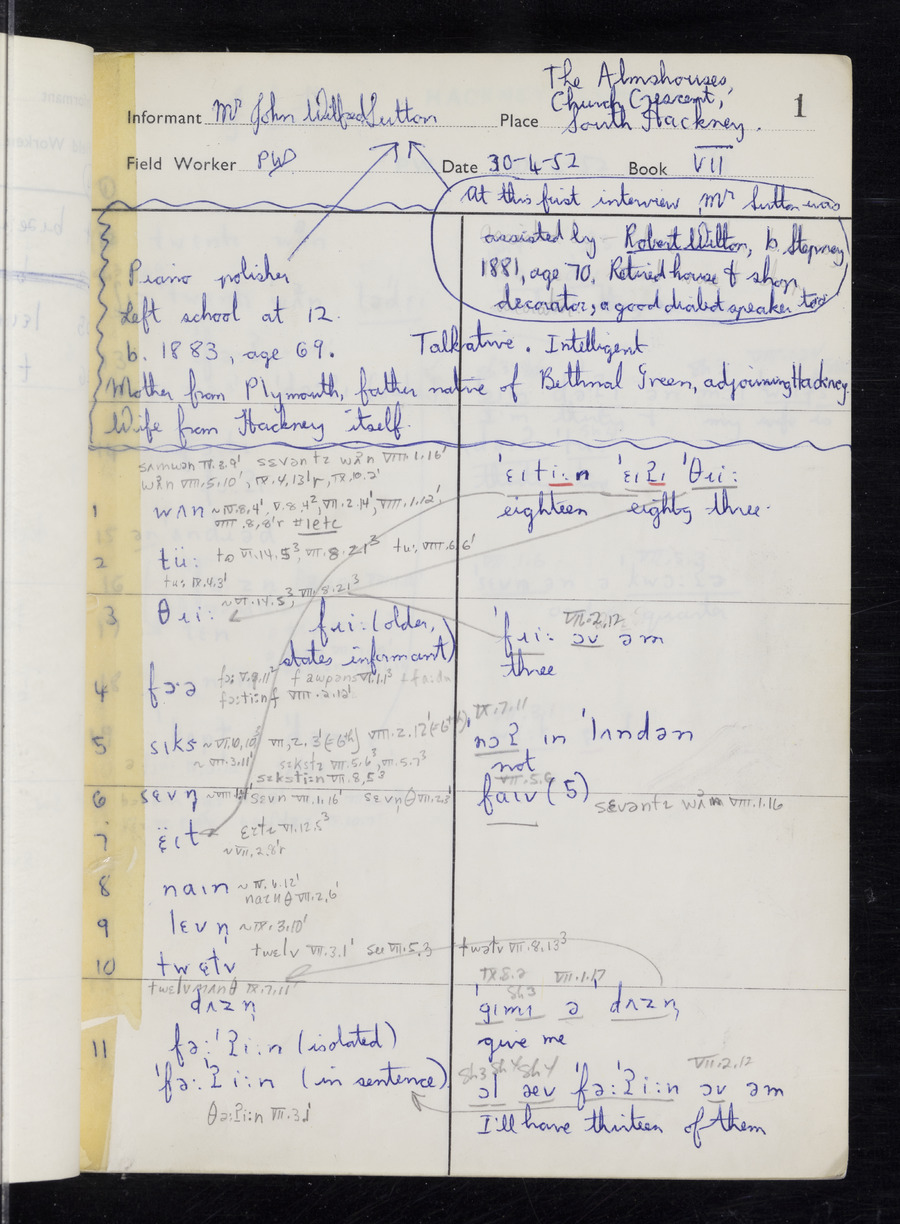 The Almshouses,
Church Crescent,
South Hackney.
1
Informant Mr John Wilfred Sutton Place
Field Worker PWD Date 30-4-52 Book VII
At this first interview, Mr Sutton was
assisted by Robert Wilton, b. Stepney
1881, age 70. Retired house & shop
decorator, a good dialect speaker too
Piano polisher
Left school at 12.
b. 1883, age 69. Talkative. Intelligent
Mother from Plymouth, father native of Bethnal Green, adjoining Hackney.
Wife from Hackney itself.
wʌn VIII.5.10', IX.4,13'r, IX.10.2'
1 wʌn ~IV.8,4', V.8.4², VII.2.14', VIII.1.12',
VIII.8,8'r #1etc
2 tü: tə VI.14.5³, VII.8.21³ tu: VIII.6.6'
tu: IX.4.3'
~VI.14.5³, VII.8.21³
3 θɹi: fɹi: (older,
states informant)
4 fɔ·ə
fɔ:ti:nf VIII.2.12'
5 sɪks ~VI.10,10³ VII,2.3'(=6th) VIII.2.12'
~VII.3.11' sɛkstɛ VII.5.6³, VII.5.7³
sɛksti:n VII.8,5³
6 sɛvn̩ sɛvn VII.1.16' sɛvn̩θ VII.2.3'
7 ɛ̈ɪt ɛɪtɛ VI.12.5³
~VII,2.8'r
8 naɪn ~IV.6.12'
naɪnθ VII.2,6'
9 lɛvn̩ ~IX.3.10'
twɛlv VII.3.1' see VII.5.3
10 twɛłv
dʌzn̩
11 fə:'ʔi:n (isolated)
'fə:ʔi:n (in sentence)
θə:ʔi:n VII.3.1'
'ɛɪti:n 'ɛɪʔɪ 'θɹi:
eighteen eighty three.
VII.2.12
'fɹi: əv əm
three
IX.7.11
nɔʔ in 'lʌndən
not
VII.5.6
faɪv (5) sɛvəntɛ wʌn VIII.1.16
twəłv VII.8.13³
IX.8.2 VII.1.17
Sh3
'gɪmɪ ə dʌzn̩
give me
Sh3 Sh4 Sh4 VII.2.12
əl æv 'fə:ʔi:n əv əm
I'll have thirteen of them